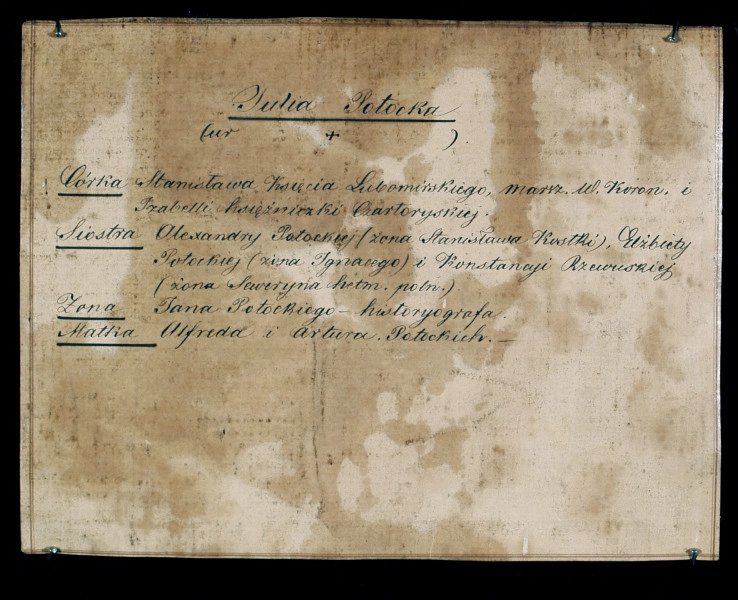 Julia Potocka
(ur + ).
Córka Stanisława Księcia Lubomirskiego, marsz. W. Koron. i
Izabelli Księżniczki Czartoryskiej.
Siostra Alexandry Potockiej (żona Stanisława Kostki), Elżbiety
Potockiej (żona Ignacego) i Konstancyi Rzewuskiej
(żona Seweryna hetm. poln.).
Żona Jana Potockiego – historyografa.
Matka Alfreda i Artura Potockich. —